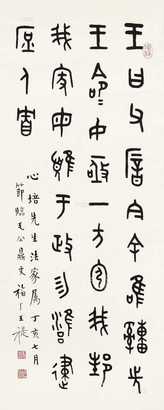 王曰父厝今余唯先
王命女亟一方圅我邦
我家于政勿雝建
庶人
心培先生法家属丁亥七月
節臨毛公鼎文福厂王禔